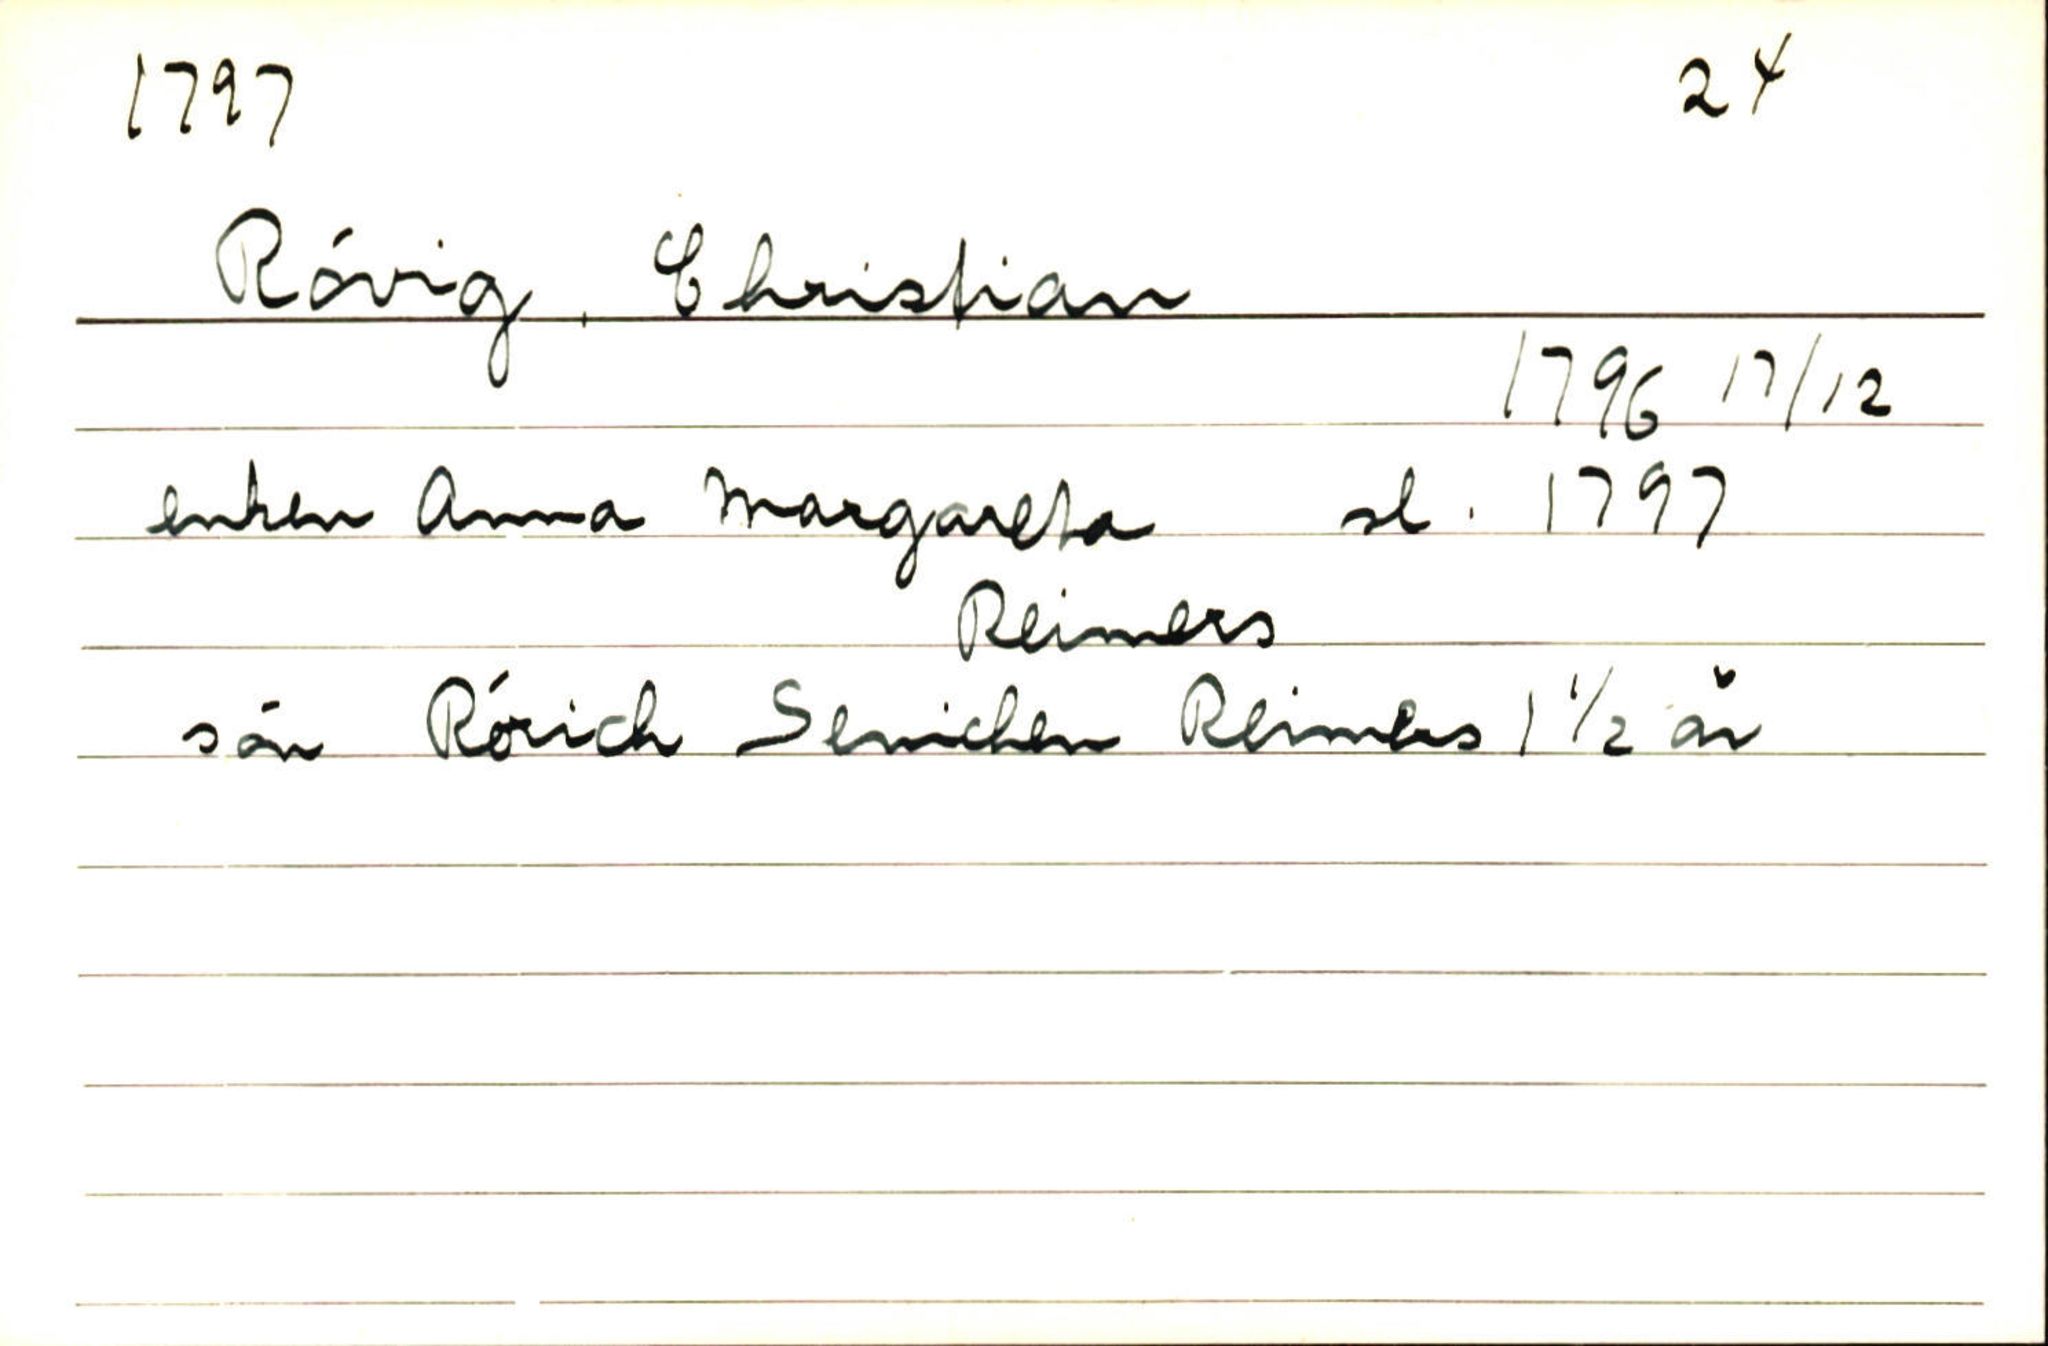 1797 24
Róvig, Christian
1796 17/12
enken Anna Margareta sl. 1797
Reimers
són Rórich Senichen Reimers 1 1/2 år